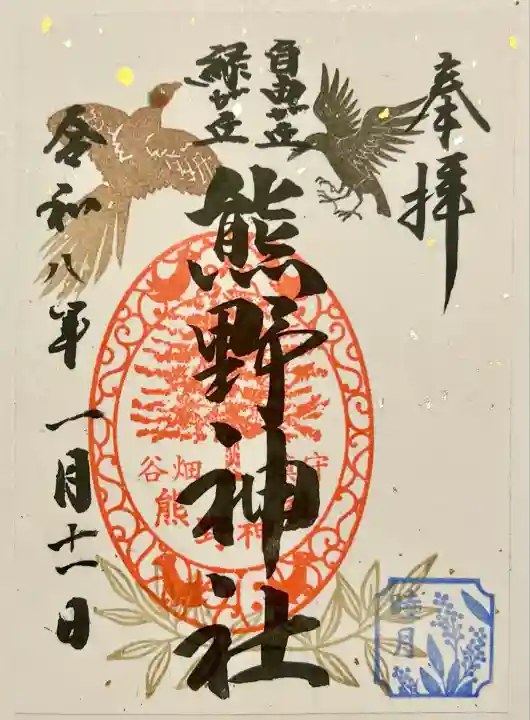 奉拝
自由が丘
緑が丘
熊野神社
令和八年 一月十一日
谷畑
睦月